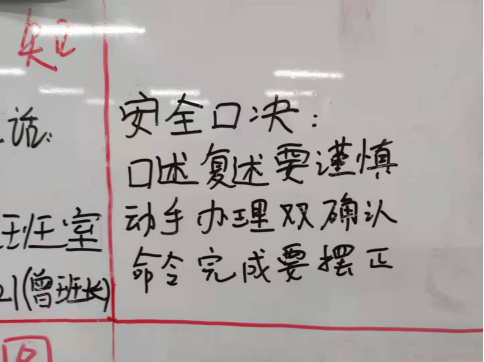 安全口决:
口述复述要谨慎
动手办理双确认
命令完成要摆正
话:
班室
21(曾班长)